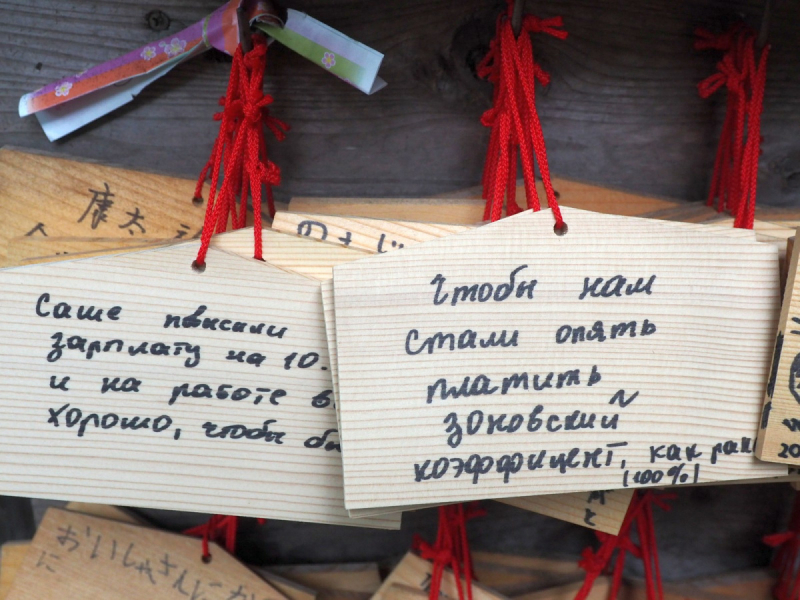 康太
のように
Саше повысили
зарплату на 10.
и на работе в
хорошо, чтобы бы
Чтобы нам
стали опять
платить
зоновский
коэффицент, как ран
(100%)
20
おいしゃさんにか
に